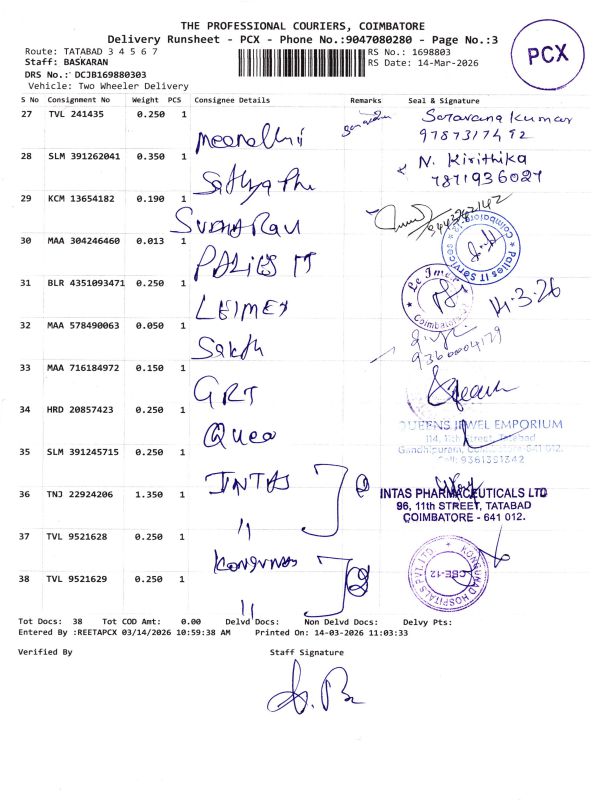 THE PROFESSIONAL COURIERS, COIMBATORE
Delivery Runsheet - PCX - Phone No.:9047080280 - Page No.:3
PCX
Route: TATABAD 3 4 5 6 7
RS No.: 1698803
Staff: BASKARAN
RS Date: 14-Mar-2026
DRS No.: DCJB169880303
Vehicle: Two Wheeler Delivery
S No Consignment No Weight PCS Consignee Details Remarks Seal & Signature
27 TVL 241435 0.250 1 Saravana Kumar
28 SLM 391262041 0.350 1 N. Kirithika
7871936027
29 KCM 13654182 0.190 1
30 MAA 304246460 0.013 1
Pallas IT Services Coimbatore-12
31 BLR 4351093471 0.250 1 LEIMEX 14.3.26
Coimbatore
32 MAA 578490063 0.050 1
33 MAA 716184972 0.150 1 GRT
34 HRD 20857423 0.250 1
QUEENS JEWEL EMPORIUM
114, 11th Street, Tatabad
Gandhipuram, Coimbatore-641 012.
Cell: 9361351342
35 SLM 391245715 0.250 1 INTAS
36 TNJ 22924206 1.350 1 "
INTAS PHARMACEUTICALS LTD
96, 11th STREET, TATABAD
COIMBATORE - 641 012.
37 TVL 9521628 0.250 1
38 TVL 9521629 0.250 1 "
KONGUNAD HOSPITALS PVT LTD
CBE-12
Tot Docs: 38 Tot COD Amt: 0.00 Delvd Docs: Non Delvd Docs: Delvy Pts:
Entered By :REETAPCX 03/14/2026 10:59:38 AM Printed On: 14-03-2026 11:03:33
Verified By
Staff Signature